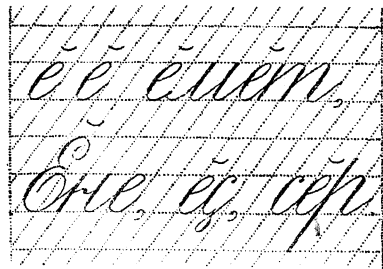 ӗ ӗ ӗмӗт,
Ӗне, ӗҫ, сӗр